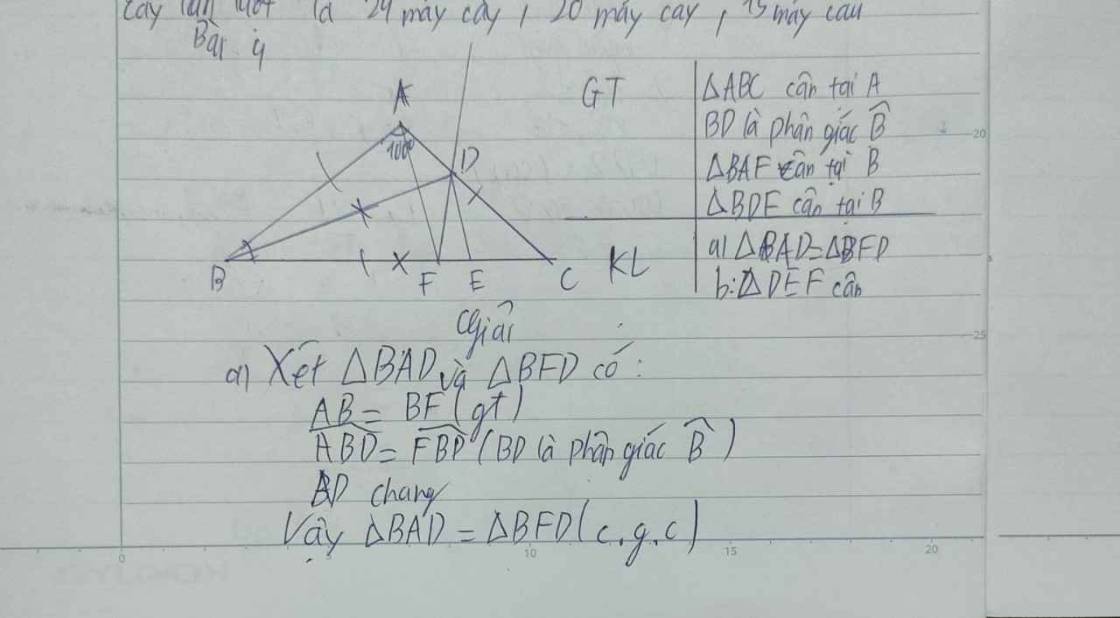 cày lần lượt là 24 máy cày, 20 máy cày, 15 máy
Bài 4
A
100°
D
B
F
E
C
GT
ΔABC cân tại A
BD là phân giác B̂
ΔBAF cân tại B
ΔBDE cân tại B
KL
a) ΔBAD=ΔBFD
b: ΔDEF cân
Giải
a) Xét ΔBAD và ΔBFD có:
AB = BF (gt)
ABD = FBD (BD là phân giác B̂)
BD chung
Vậy ΔBAD = ΔBFD (c.g.c)
20
25
0
10
15
20